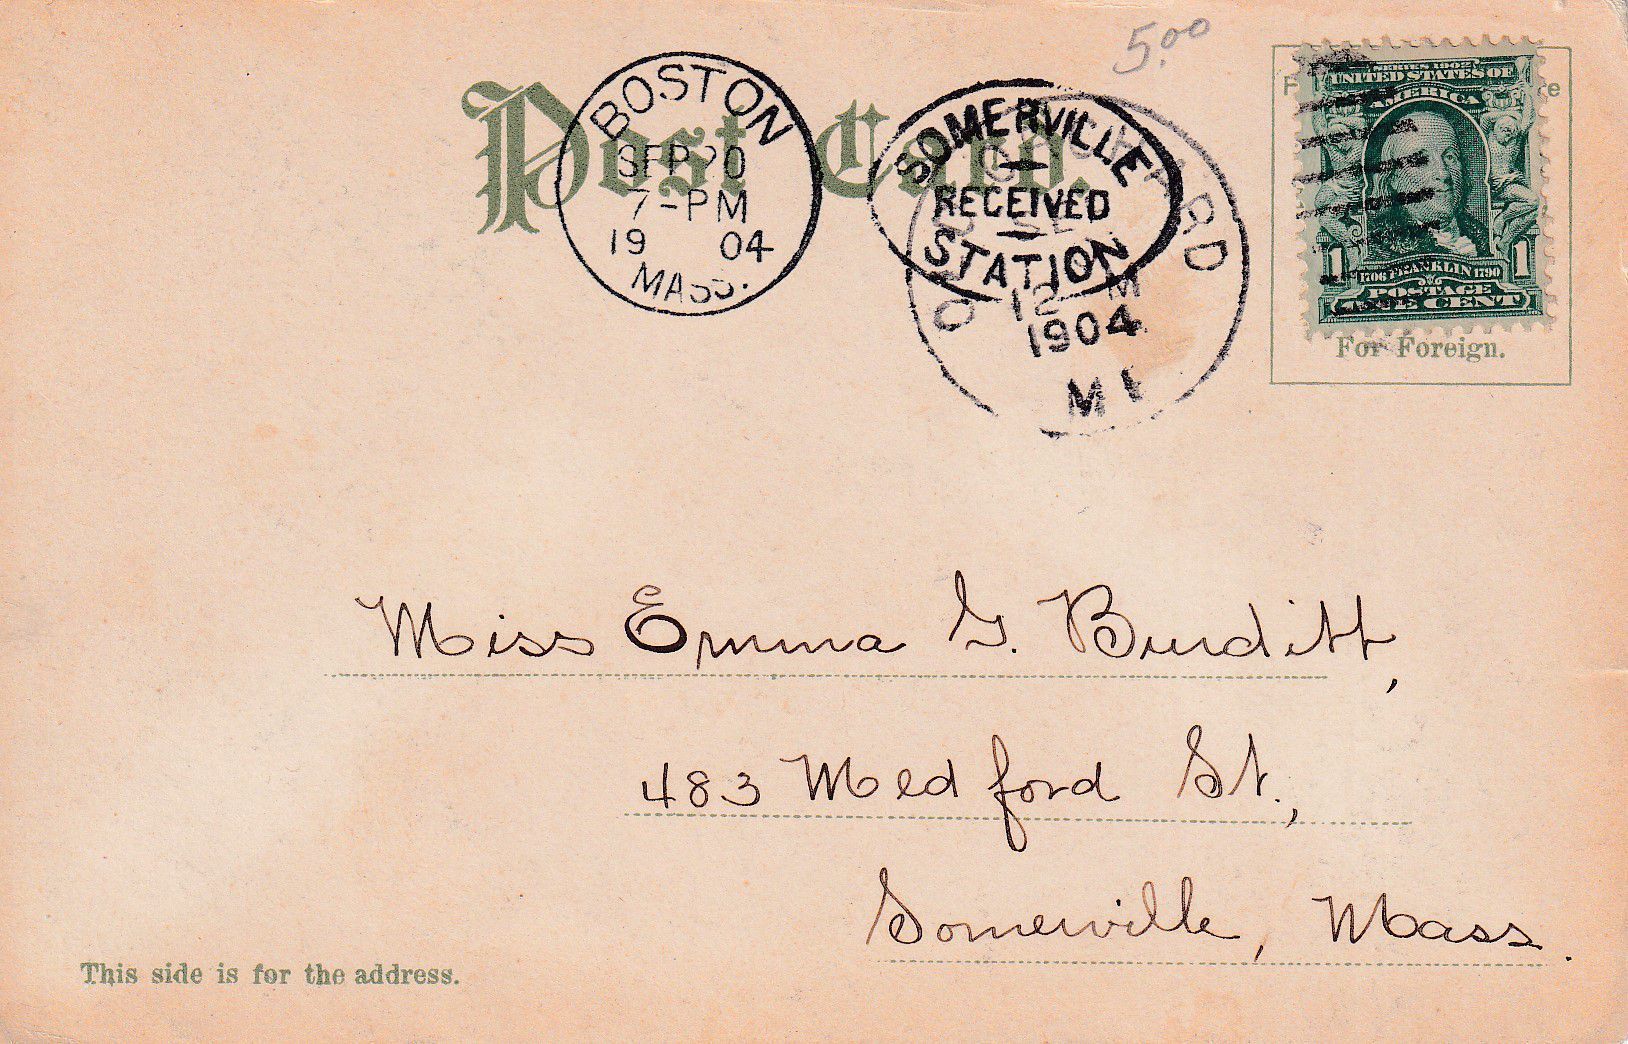 5.00
Post Card.
BOSTON
SEP 20
7-PM
19 04
MASS.
SOMERVILLE
RECEIVED
STATION
ORCHARD
12 M
1904
SERIES 1902
UNITED STATES OF
AMERICA
1 1706 FRANKLIN 1790 1
POSTAGE
ONE CENT
For Foreign.
Miss Emma G. Burditt,
483 Medford St.,
Somerville, Mass.
This side is for the address.